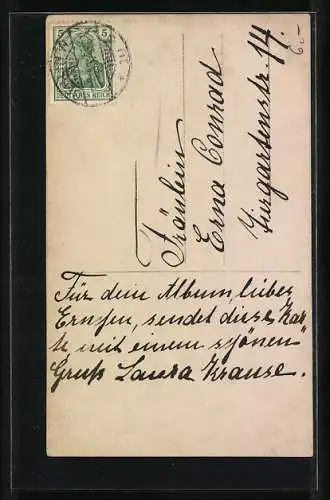 5 5
DEUTSCHES REICH
6.-
Fräulein
Erna Conrad
14.
Für dein Album, lieber
Ernchen, sendet diese Kar
te mit einem schönen
Gruß Laura Krause.